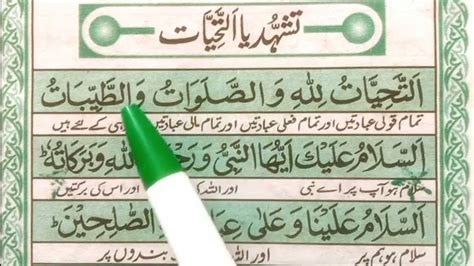 تشہد یا التَّحِيَّات
اَلتَّحِيَّاتُ لِلّٰهِ وَالصَّلَوَاتُ وَالطَّيِّبَاتُ
تمام قولی عبادتیں اور تمام فعلی عبادتیں اور تمام مالی عبادتیں ہی کے لئے ہیں
اَلسَّلَامُ عَلَيْكَ اَيُّهَا النَّبِيُّ وَ لّٰهِ وَبَرَكَاتُهٗ
سلام ہو آپ پر اے نبی اور اللہ اور اس کی برکتیں
اَلسَّلَامُ عَلَيْنَا وَعَلٰى الصَّالِحِيْنَ
سلام ہو ہم پر اور بندوں پر